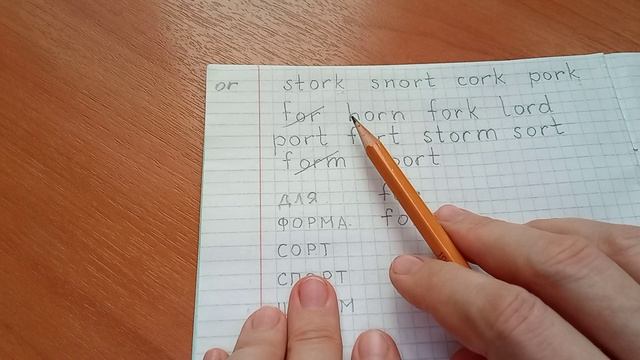 or stork snort cork pork
for fork lord
port storm sort
form
ДЛЯ
ФОРМА
СОРТ
СПОРТ